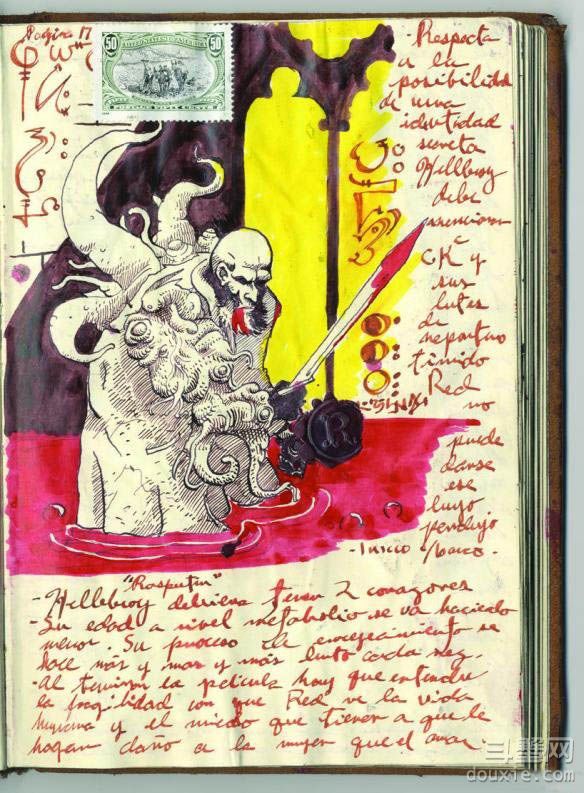 Pagina 17
50 50
-Respecta
a la
posibilidad
de una
identidad
secreta
Hellboy
debe
mencionar
CK y
sus
lentes
de
reportero
timido
Red
no
puede
darse
ese
lujo
pendejo
-Inicio
R
"Rasputin"
-Hellboy debiera tener 2 corazones
-Su edad a nivel metabolico se va haciedo
menor. Su proceso de envejecimiento se
hace mas y mas y más lento cada vez.
-Al terminar la pelicula hay que entender
la fragilidad con que Red ve la vida
humana y el miedo que tiene a que le
hagan daño a la mujer que el ama.
斗蟹网
douxie.com